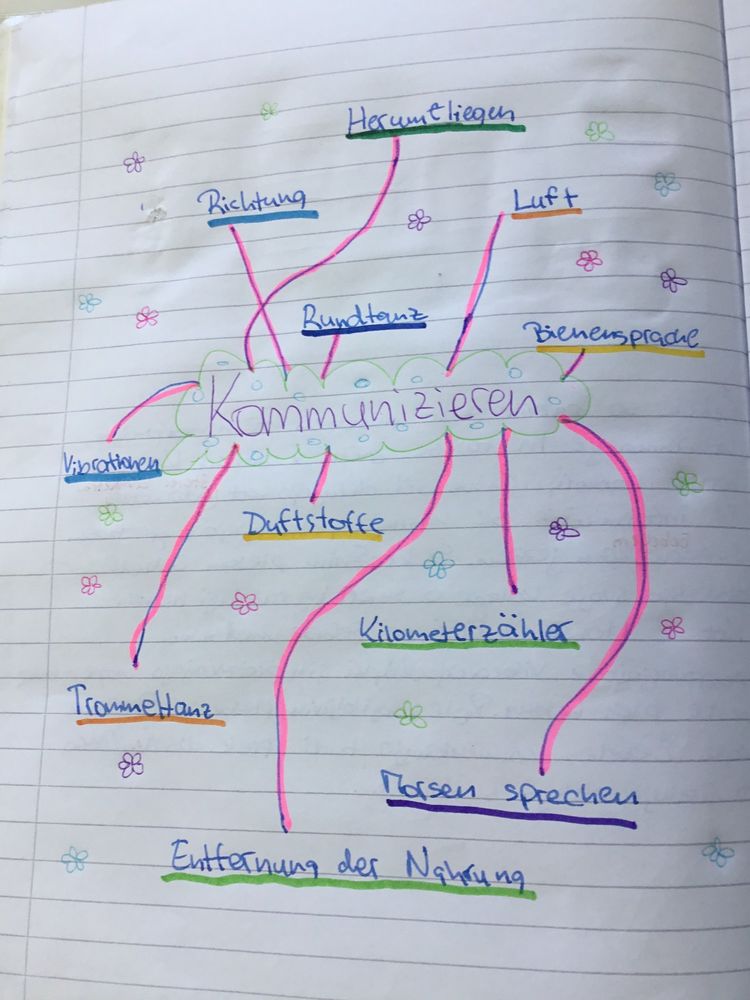 Herumfliegen
Richtung
Luft
Rundtanz
Bienensprache
Kommunizieren
Vibrationen
Duftstoffe
Kilometerzähler
Trommeltanz
Morsen sprechen
Entfernung der Nahrung